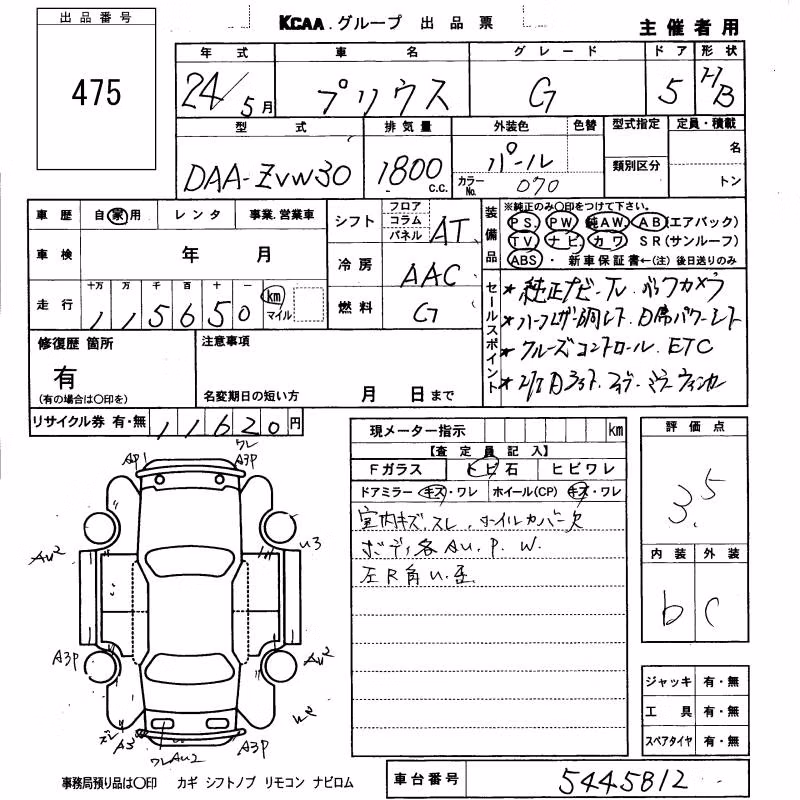 出品番号
475
KCAA.グループ 出品票
主催者用
年式 車名 グレード ドア 形状
24/5月 プリウス G 5 H/B
型式 排気量 外装色 色替 型式指定 定員・積載
DAA-ZVW30 1800 c.c. パール 名
カラーNo. 070 類別区分 トン
車歴 自家用 レンタ 事業.営業車
車検 年 月
走行 十万 万 千 百 十 一
1 1 5 6 5 0 km マイル
シフト フロア コラム パネル AT
冷房 AAC
燃料 G
装備品
※純正のみ〇印をつけて下さい。
PS. PW 純AW. AB(エアバック)
TV ナビ. カワ SR(サンルーフ)
ABS ・ 新車保証書←(注)後日送りのみ
セールスポイント
★純正ナビ.TV.バックカメラ
★ハーフレザー調シート.D席パワーシート
★クルーズコントロール.ETC
修復歴 箇所
有
(有の場合は〇印を)
注意事項
名変期日の短い方 月 日まで
リサイクル券 有・無 11620円
現メーター指示 km
【査定員記入】
Fガラス トビ石 ヒビワレ
ドアミラー キズ・ワレ ホイール(CP) キズ・ワレ
室内キズ.スレ.ホイルカバー欠
ボディ各AU.P.W.
左R角U.歪
評価点
3.5
内装 外装
b C
ワレ
AP1 A3P
AU2 U3
A3P AU2
ズレ A3 U2
ワレ AU2 A3P
ジャッキ 有・無
工具 有・無
スペアタイヤ 有・無
事務局預り品は〇印 カギ シフトノブ リモコン ナビロム
車台番号 5445812